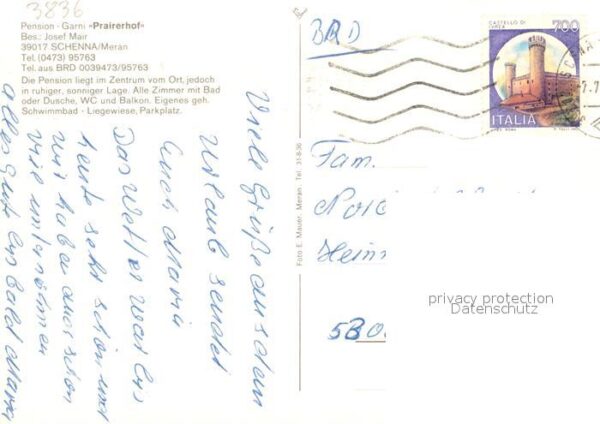 3836
Pension - Garni »Prairerhof«
Bes.: Josef Mair
39017 SCHENNA/Meran
Tel. (0473) 95763
Tel. aus BRD 0039473/95763
Die Pension liegt im Zentrum vom Ort, jedoch
in ruhiger, sonniger Lage. Alle Zimmer mit Bad
oder Dusche, WC und Balkon. Eigenes geh.
Schwimmbad - Liegewiese, Parkplatz.
Viele Grüße aus dem
Urlaub sendet
Euch Maria
Das Wetter war bis
heute sehr schön und
wir haben auch schon
viel unternommen
alles Gute bis bald Maria
Foto E. Mauer, Meran, Tel. 31-8-36
BRD
CASTELLO DI
IVREA
700
ITALIA
Fam.
Hein
530
privacy protection
Datenschutz